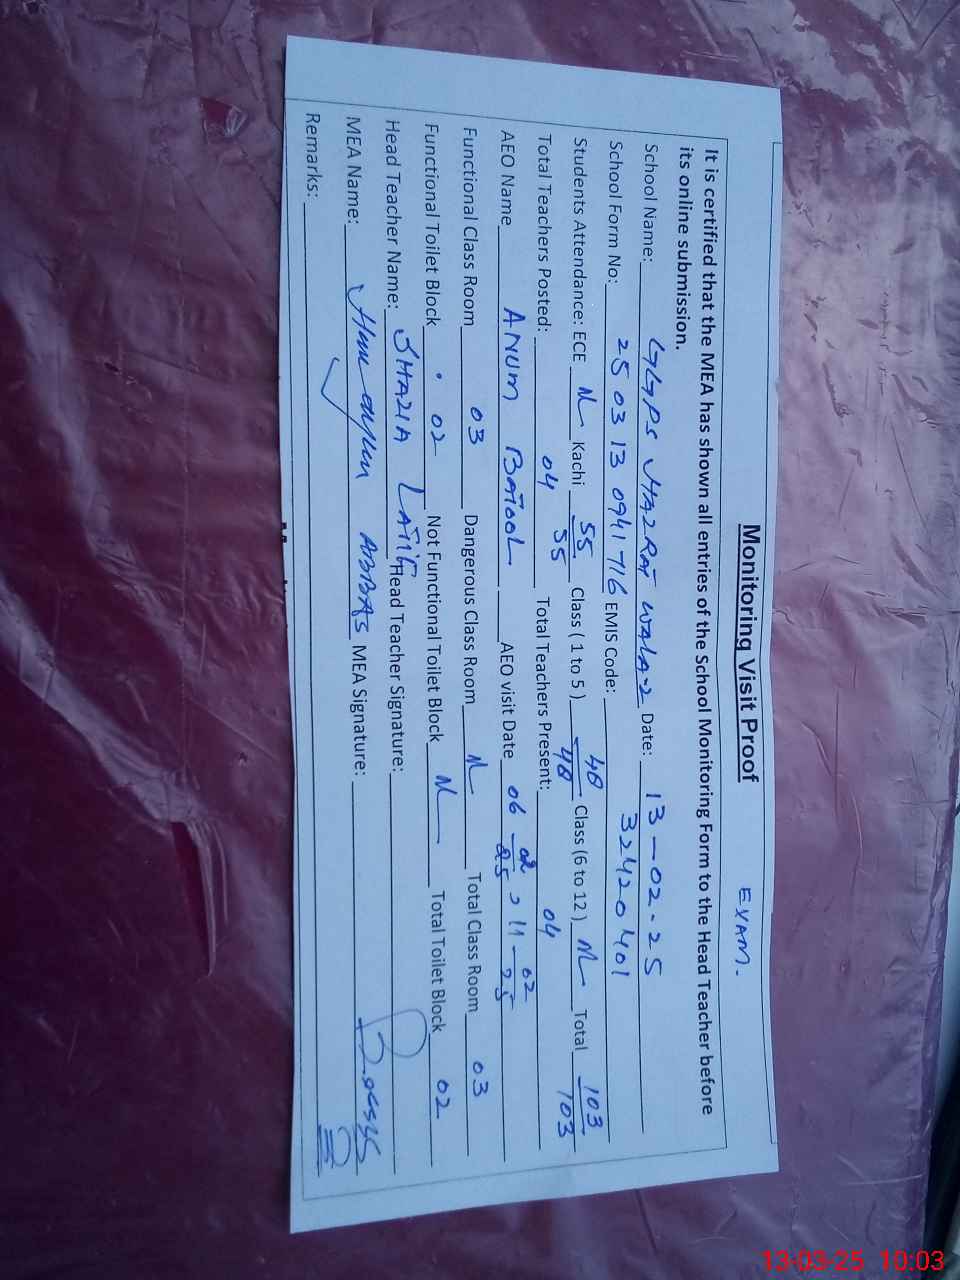 EXAM.
Monitoring Visit Proof
It is certified that the MEA has shown all entries of the School Monitoring Form to the Head Teacher before
its online submission.
School Name: GGPS HAZRAT WALA-2 Date: 13-02-25
School Form No: 25 03 13 0941716 EMIS Code: 32420401
Students Attendance: ECE Kachi 55/55 Class ( 1 to 5 ) 48/48 Class (6 to 12 ) Total 103/103
Total Teachers Posted: 04 Total Teachers Present: 04
AEO Name ANUM BATOOL AEO visit Date 06-02/25, 11-02/25
Functional Class Room 03 Dangerous Class Room Total Class Room 03
Functional Toilet Block 02 Not Functional Toilet Block Total Toilet Block 02
Head Teacher Name: SHAZIA LATIF Head Teacher Signature:
MEA Name: Humayun ABBAS MEA Signature:
Remarks:
13-03-25 10:03